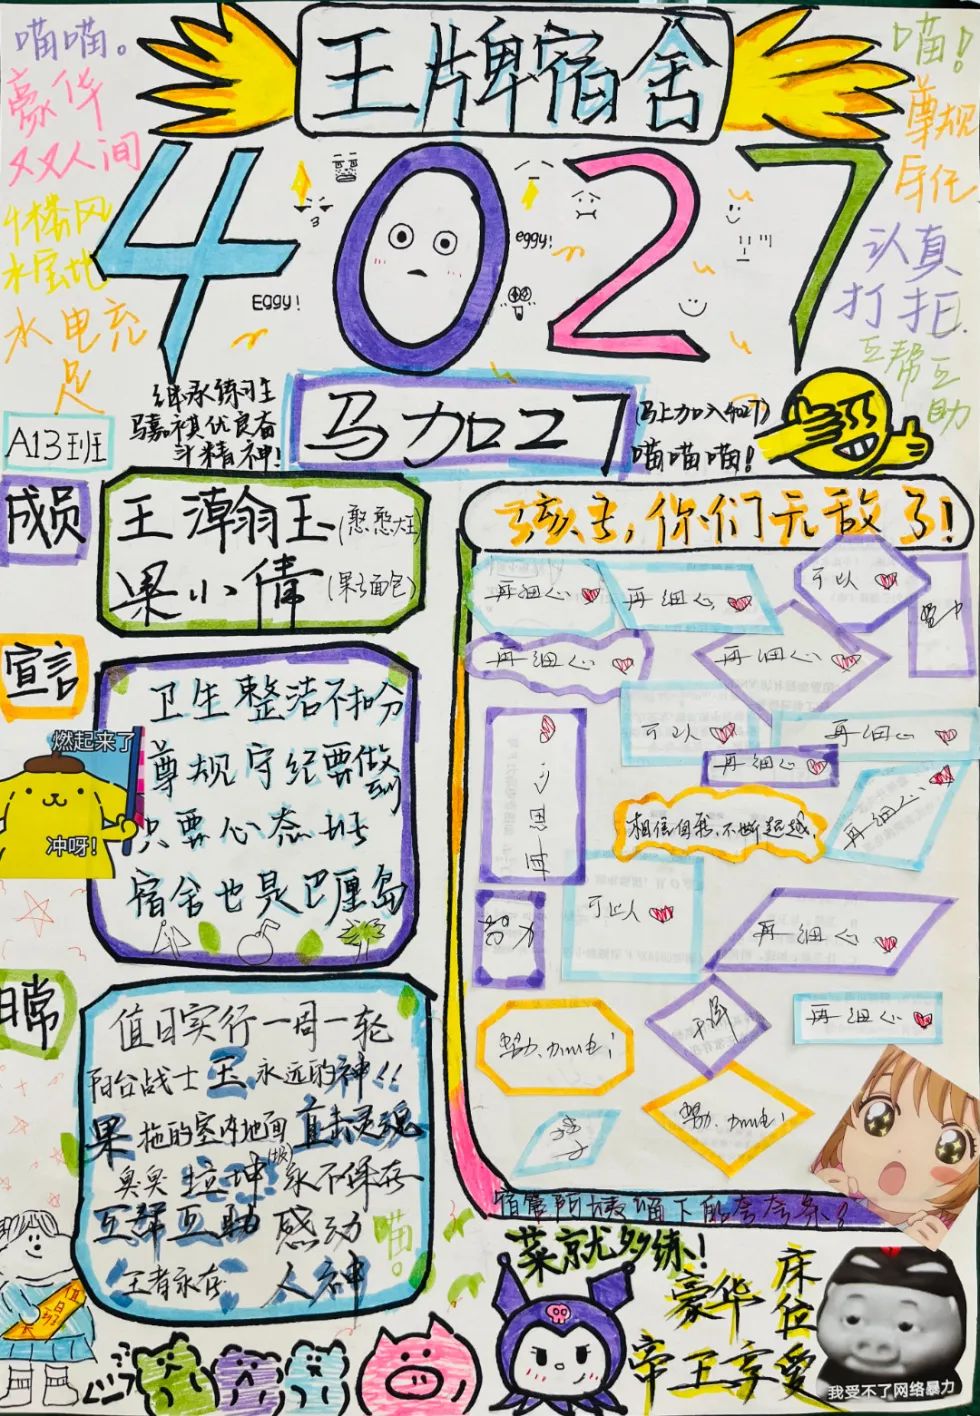 喵喵。
豪华
双人间
4楼风
水宝地
水电充
足
王牌宿舍
喵!
尊规
守纪
认真
打扫
互帮互
助
4027
Eggy!
eggy!
继承练习生
骉嘉祺优良奋
斗精神!
马加27
(马上加入4027)
喵喵喵!
A13班
成员
王漳翁玉(憨憨大王)
梁小倩(果子面包)
宣言
卫生整洁不扣分
尊规守纪要做到
只要心态好
宿舍也是巴厘岛
燃起来了
冲呀!
日常
值日实行一周一轮
阳台战士玉永远的神!!
果拖的室内地面直击灵魂
臭臭垃圾永不保存
互帮互助感动
喵。
王者永存 人神
值日
孩子,你们无敌了!
再细心
再细心
可以
再细心
再细心
可以
再细心
再细心
再细心
再细心
相信自我,不断超越
努力
可以
再细心
再细心
努力、加油!
努力、加油!
宿管阿姨留下的夸夸条?
菜就多练!
豪华床位
帝王享受
我受不了网络暴力